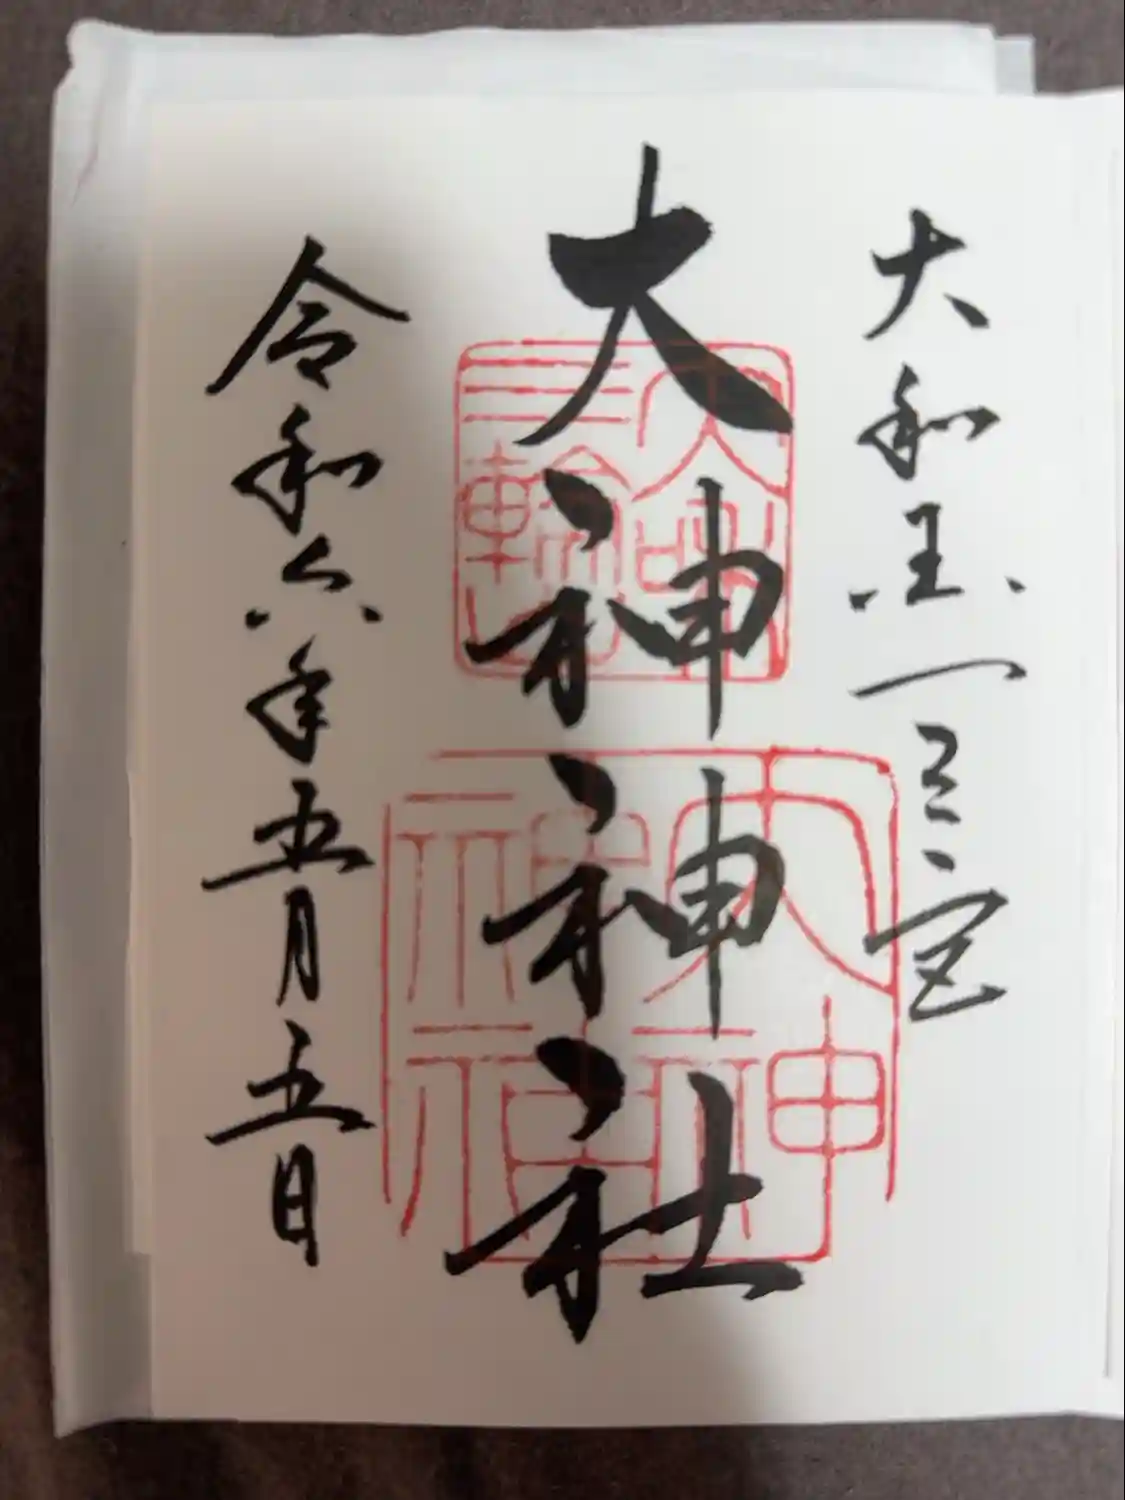 大和国一之宮
大神神社
令和六年五月五日
大神
神社